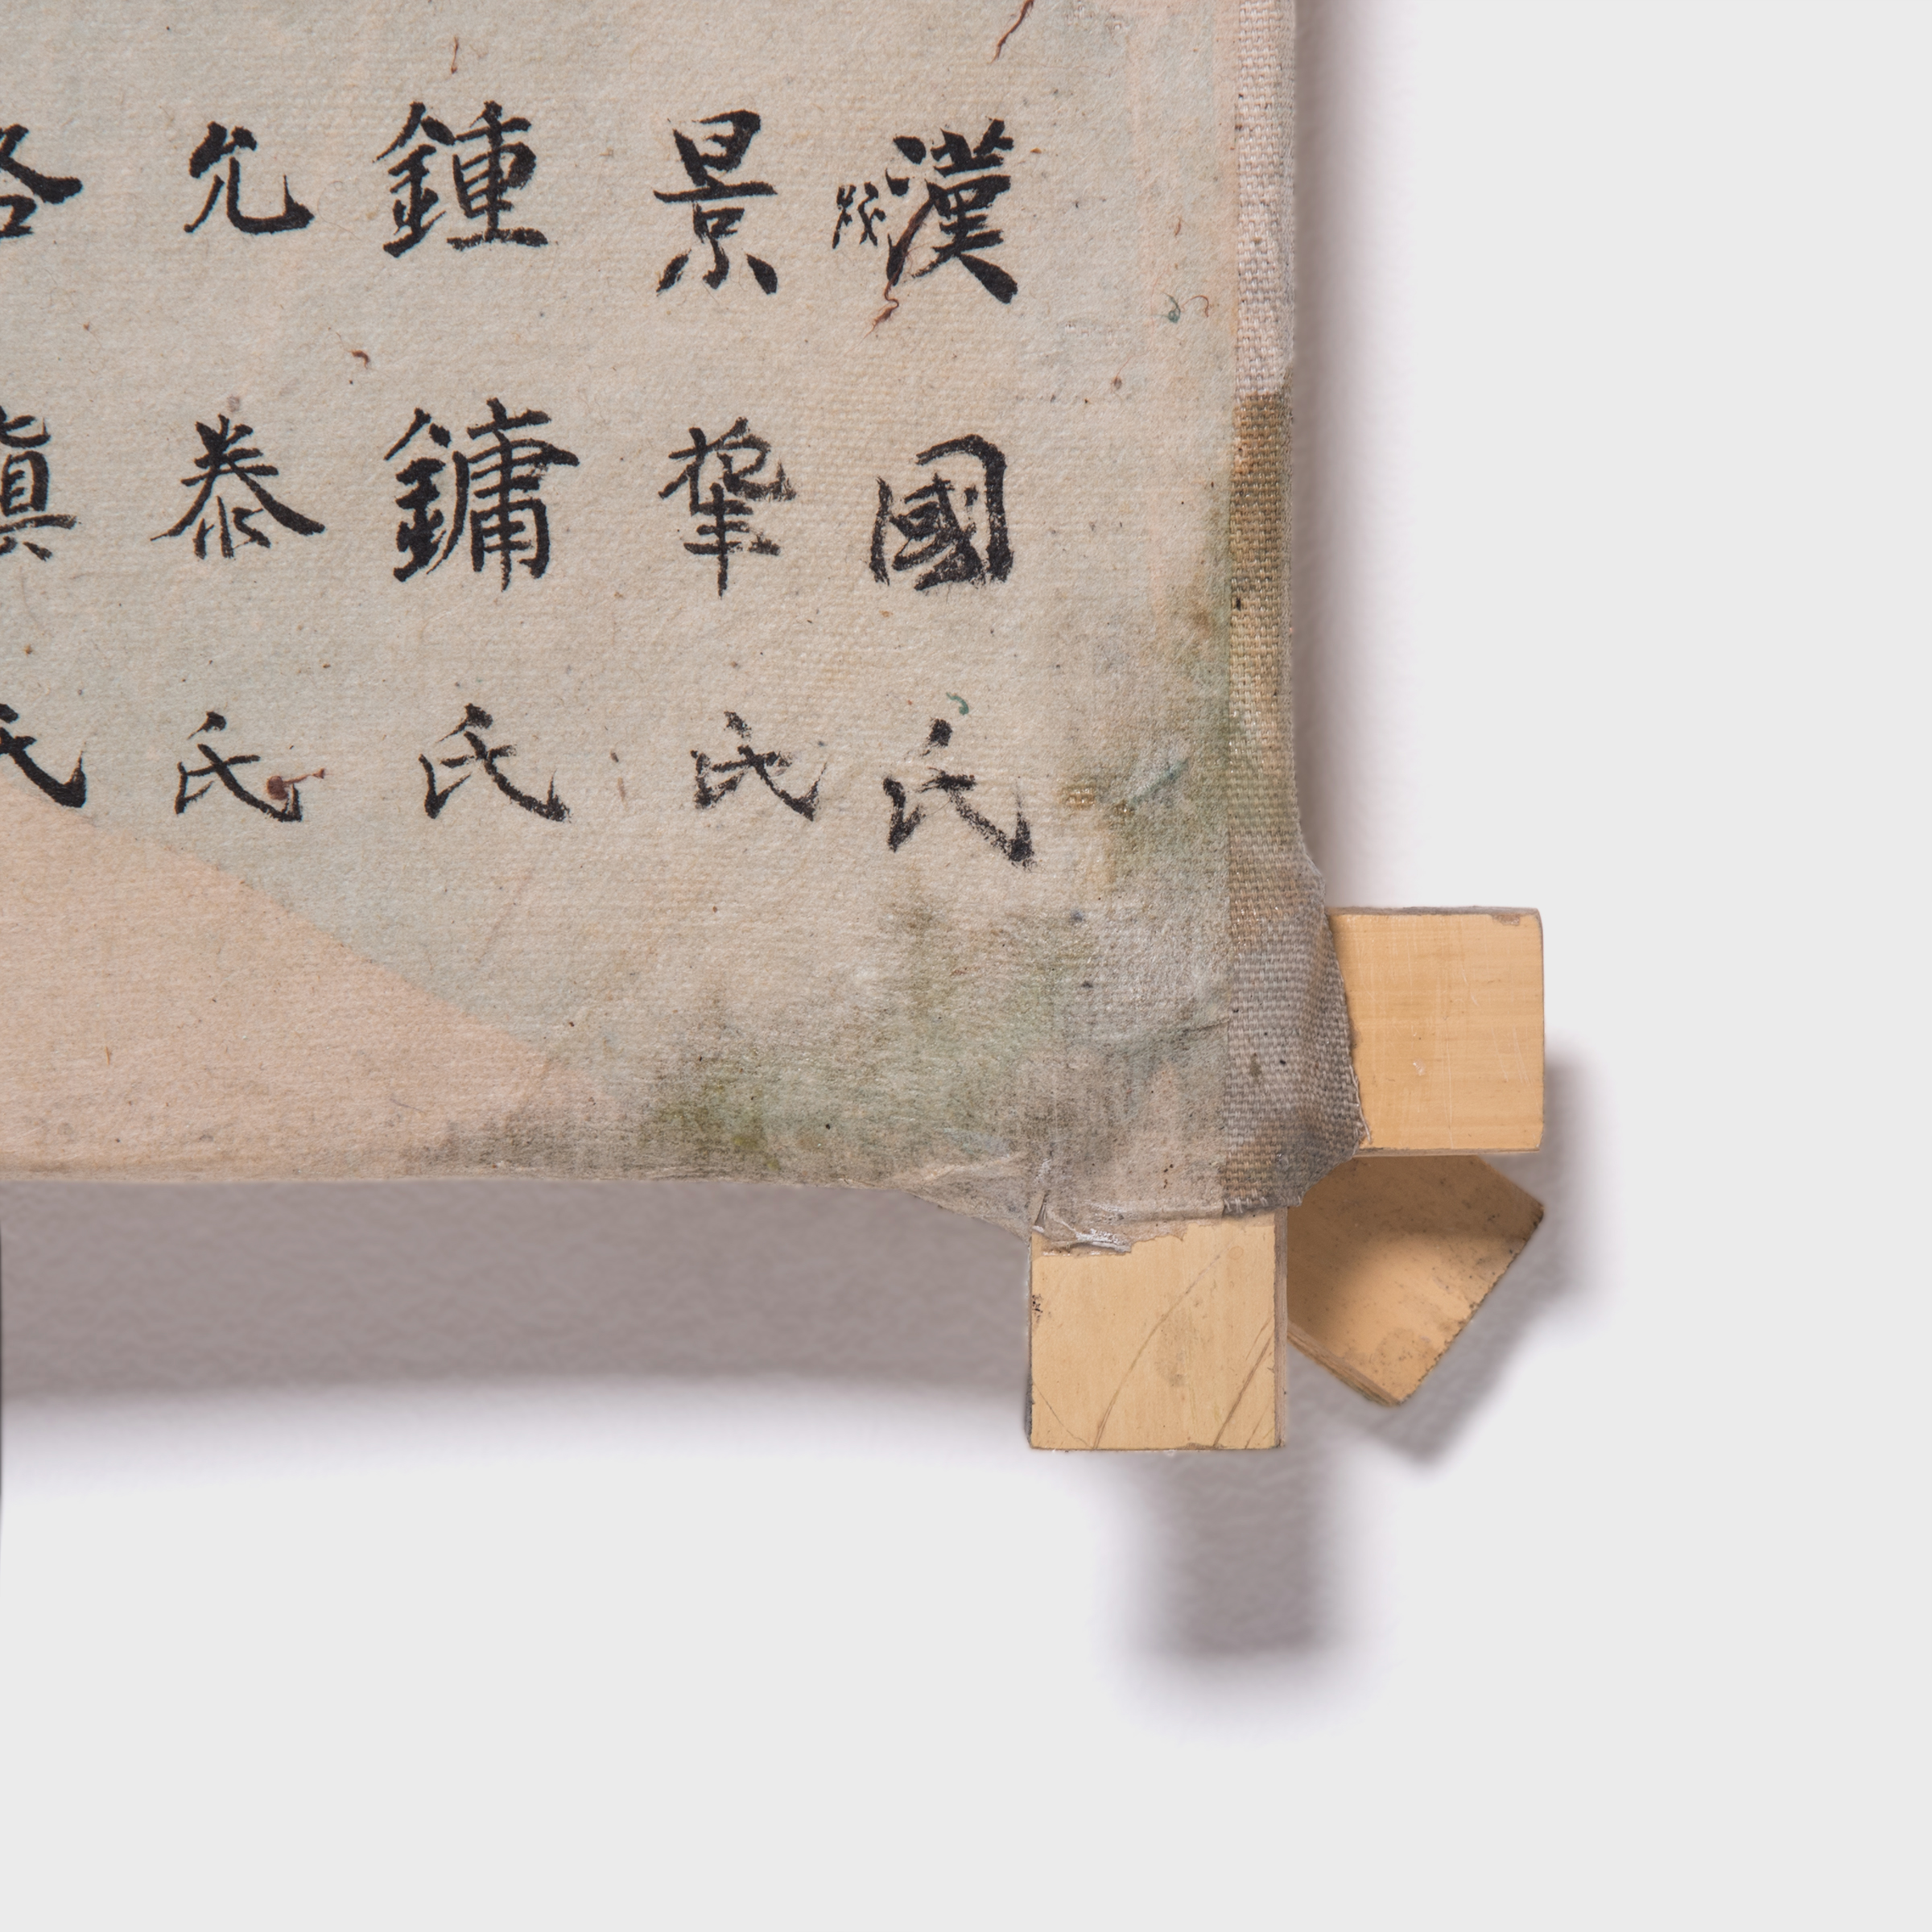 漢國氏
景氏
鍾鏞氏
允泰氏
氏